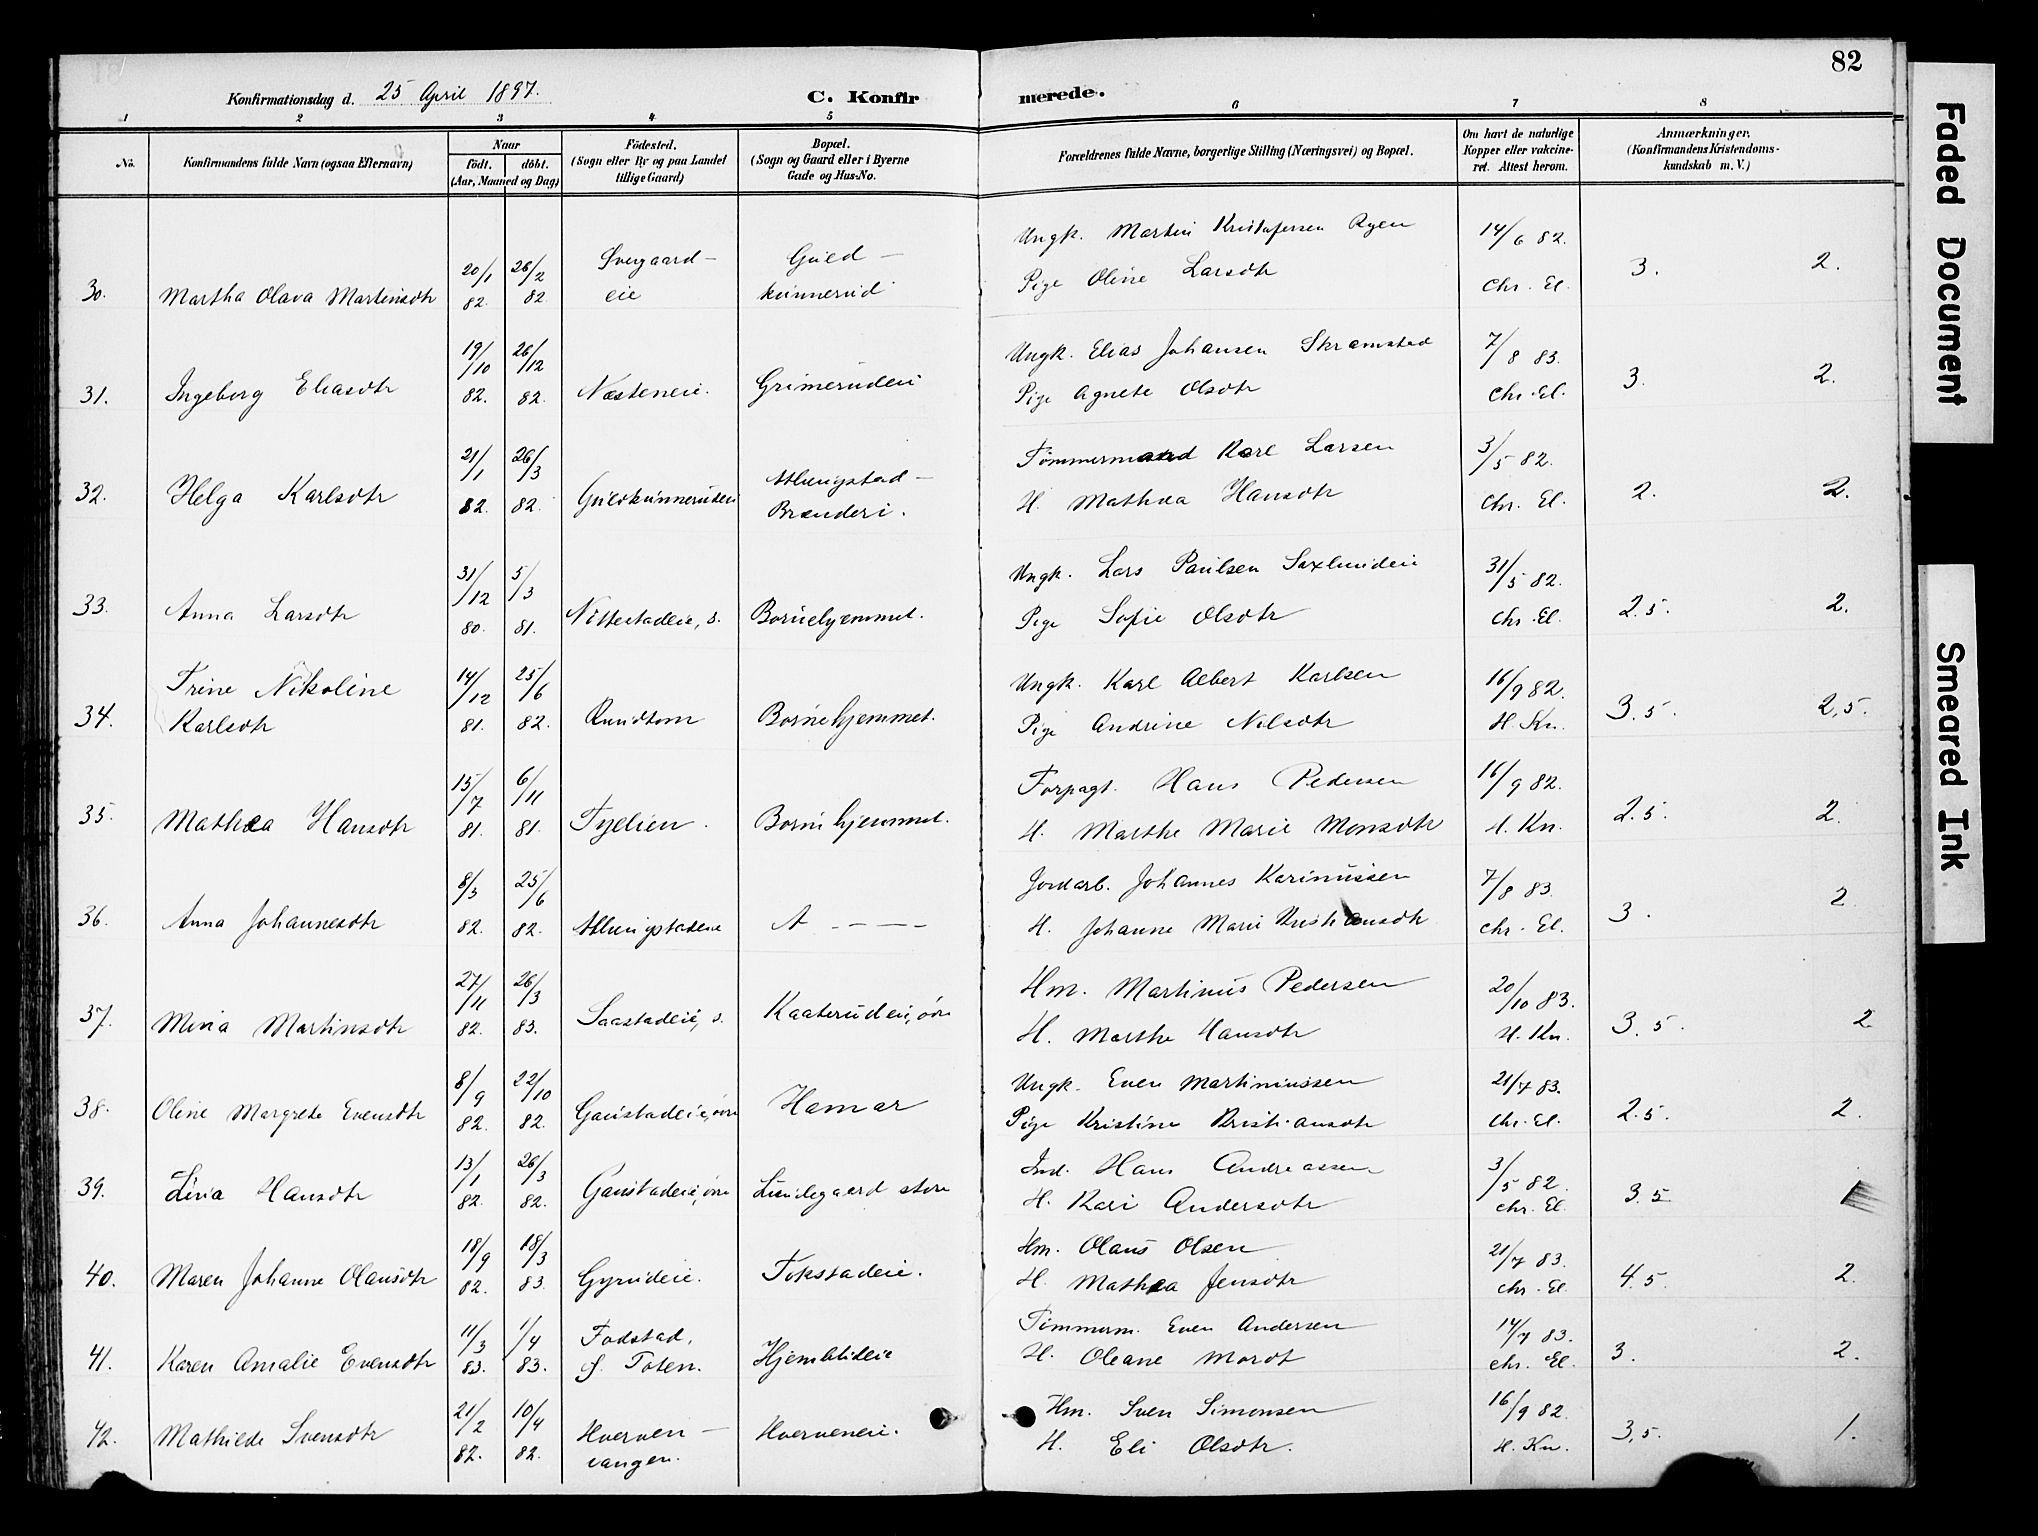 82
Konfirmationsdag d. 25 April 1897.
C. Konfirmerede.
1 2 3 4 5 6 7 8
No.
Konfirmandens fulde Navn (ogsaa Efternavn)
Naar
födt. döbt.
(Aar, Maaned og Dag)
Födested.
(Sogn eller By og paa Landet
tillige Gaard)
Bopæl.
(Sogn og Gaard eller i Byerne
Gade og Hus-No.
Forældrenes fulde Navne, borgerlige Stilling (Næringsvei) og Bopæl.
Om havt de naturlige
Kopper eller vakcine-
ret. Attest herom.
Anmærkninger.
(Konfirmandens Kristendoms-
kundskab m. V.)
Ungk. Martin Kristofersen Ryen 14/6 82.
20/1 26/2 Svegaard- Guld-
30. Martha Olava Martinsdtr 82. 82 eie kinnerud Pige Oline Larsdtr Chr. El. 3. 2.
19/10 26/12 Ungk. Elias Johansen Skramstad 7/8 83.
31. Ingeborg Eliasdtr 82. 82. Næsteneie. Grimerudeie Pige Agnete Olsdtr Chr. El. 3. 2.
21/1 26/3 Tømmermand Karl Larsen 3/5 82.
32. Helga Karlsdtr 82. 82. Guldkinnerudeie Brænderi. H. Mathea Hansdtr Chr. El. 2. 2.
31/12 5/3 Ungk. Lars Paulsen Saxlundeie 31/5 82.
33. Anna Larsdtr 80. 81. Nøttestadeie, s. Børnehjemmet. Pige Sofie Olsdtr Chr. El. 2.5. 2.
Trine Nikoline 14/12 25/6 Ungk. Karl Albert Karlsen 16/9 82.
34. Karlsdtr 81. 82. Rundtom Børnehjemmet. Pige Andrine Nilsdtr H. Kn. 3.5. 2,5.
15/7 6/11 Forpagt. Hans Pedersen 16/9 82.
35. Mathea Hansdtr 81. 81. Tyelien. Børnehjemmet. H. Marthe Marie Monsdtr H. Kn. 2.5. 2.
8/3 25/6 Jordarb. Johannes Karinussen 7/8 83.
36. Anna Johannesdtr 82. 82. A - - - - H. Johanne Marie Kristiansdtr Chr. El. 3. 2
27/11 26/3 Hm. Martinus Pedersen 20/10 83.
37. Mina Martinsdtr 82. 83. Saastadeie, s. Kaaterudeie, øvre H. Marthe Hansdtr H. Kn. 3.5. 2.
8/9 22/10 Ungk. Even Martiniussen 21/7 83.
38. Oline Margrete Evensdtr 82. 82. Gaustadeie, øvre Hamar Pige Kristine Kristiansdtr Chr. El. 2.5. 2.
13/1 26/3 Ind. Hans Andreassen 3/5 82.
39. Lina Hansdtr 82. 82. Gaustadeie, øvre Lundegaard store H. Kari Andersdtr Chr. El. 3.5
18/9 18/3 Hm. Olaus Olsen 21/7 83.
40. Maren Johanne Olausdtr 82. 83. Gyrudeie. Fokstadeie. H. Mathea Jensdtr Chr. El. 4.5. 2.
11/3 1/4 Fodstad, Tømmerm. Even Andersen 14/7 83.
41. Karen Amalie Evensdtr 83. 83. Ø. Toten. Hjemblideie H. Oleane Mordt Chr. El. 3. 2.
21/2 10/4 Hm. Sven Simonsen 16/9 82.
42. Mathilde Svensdtr 82. 82. Hverven-vangen. Hverveneie. H. Eli Olsdtr. H. Kn. 3,5. 1.
Faded Document
Smeared Ink